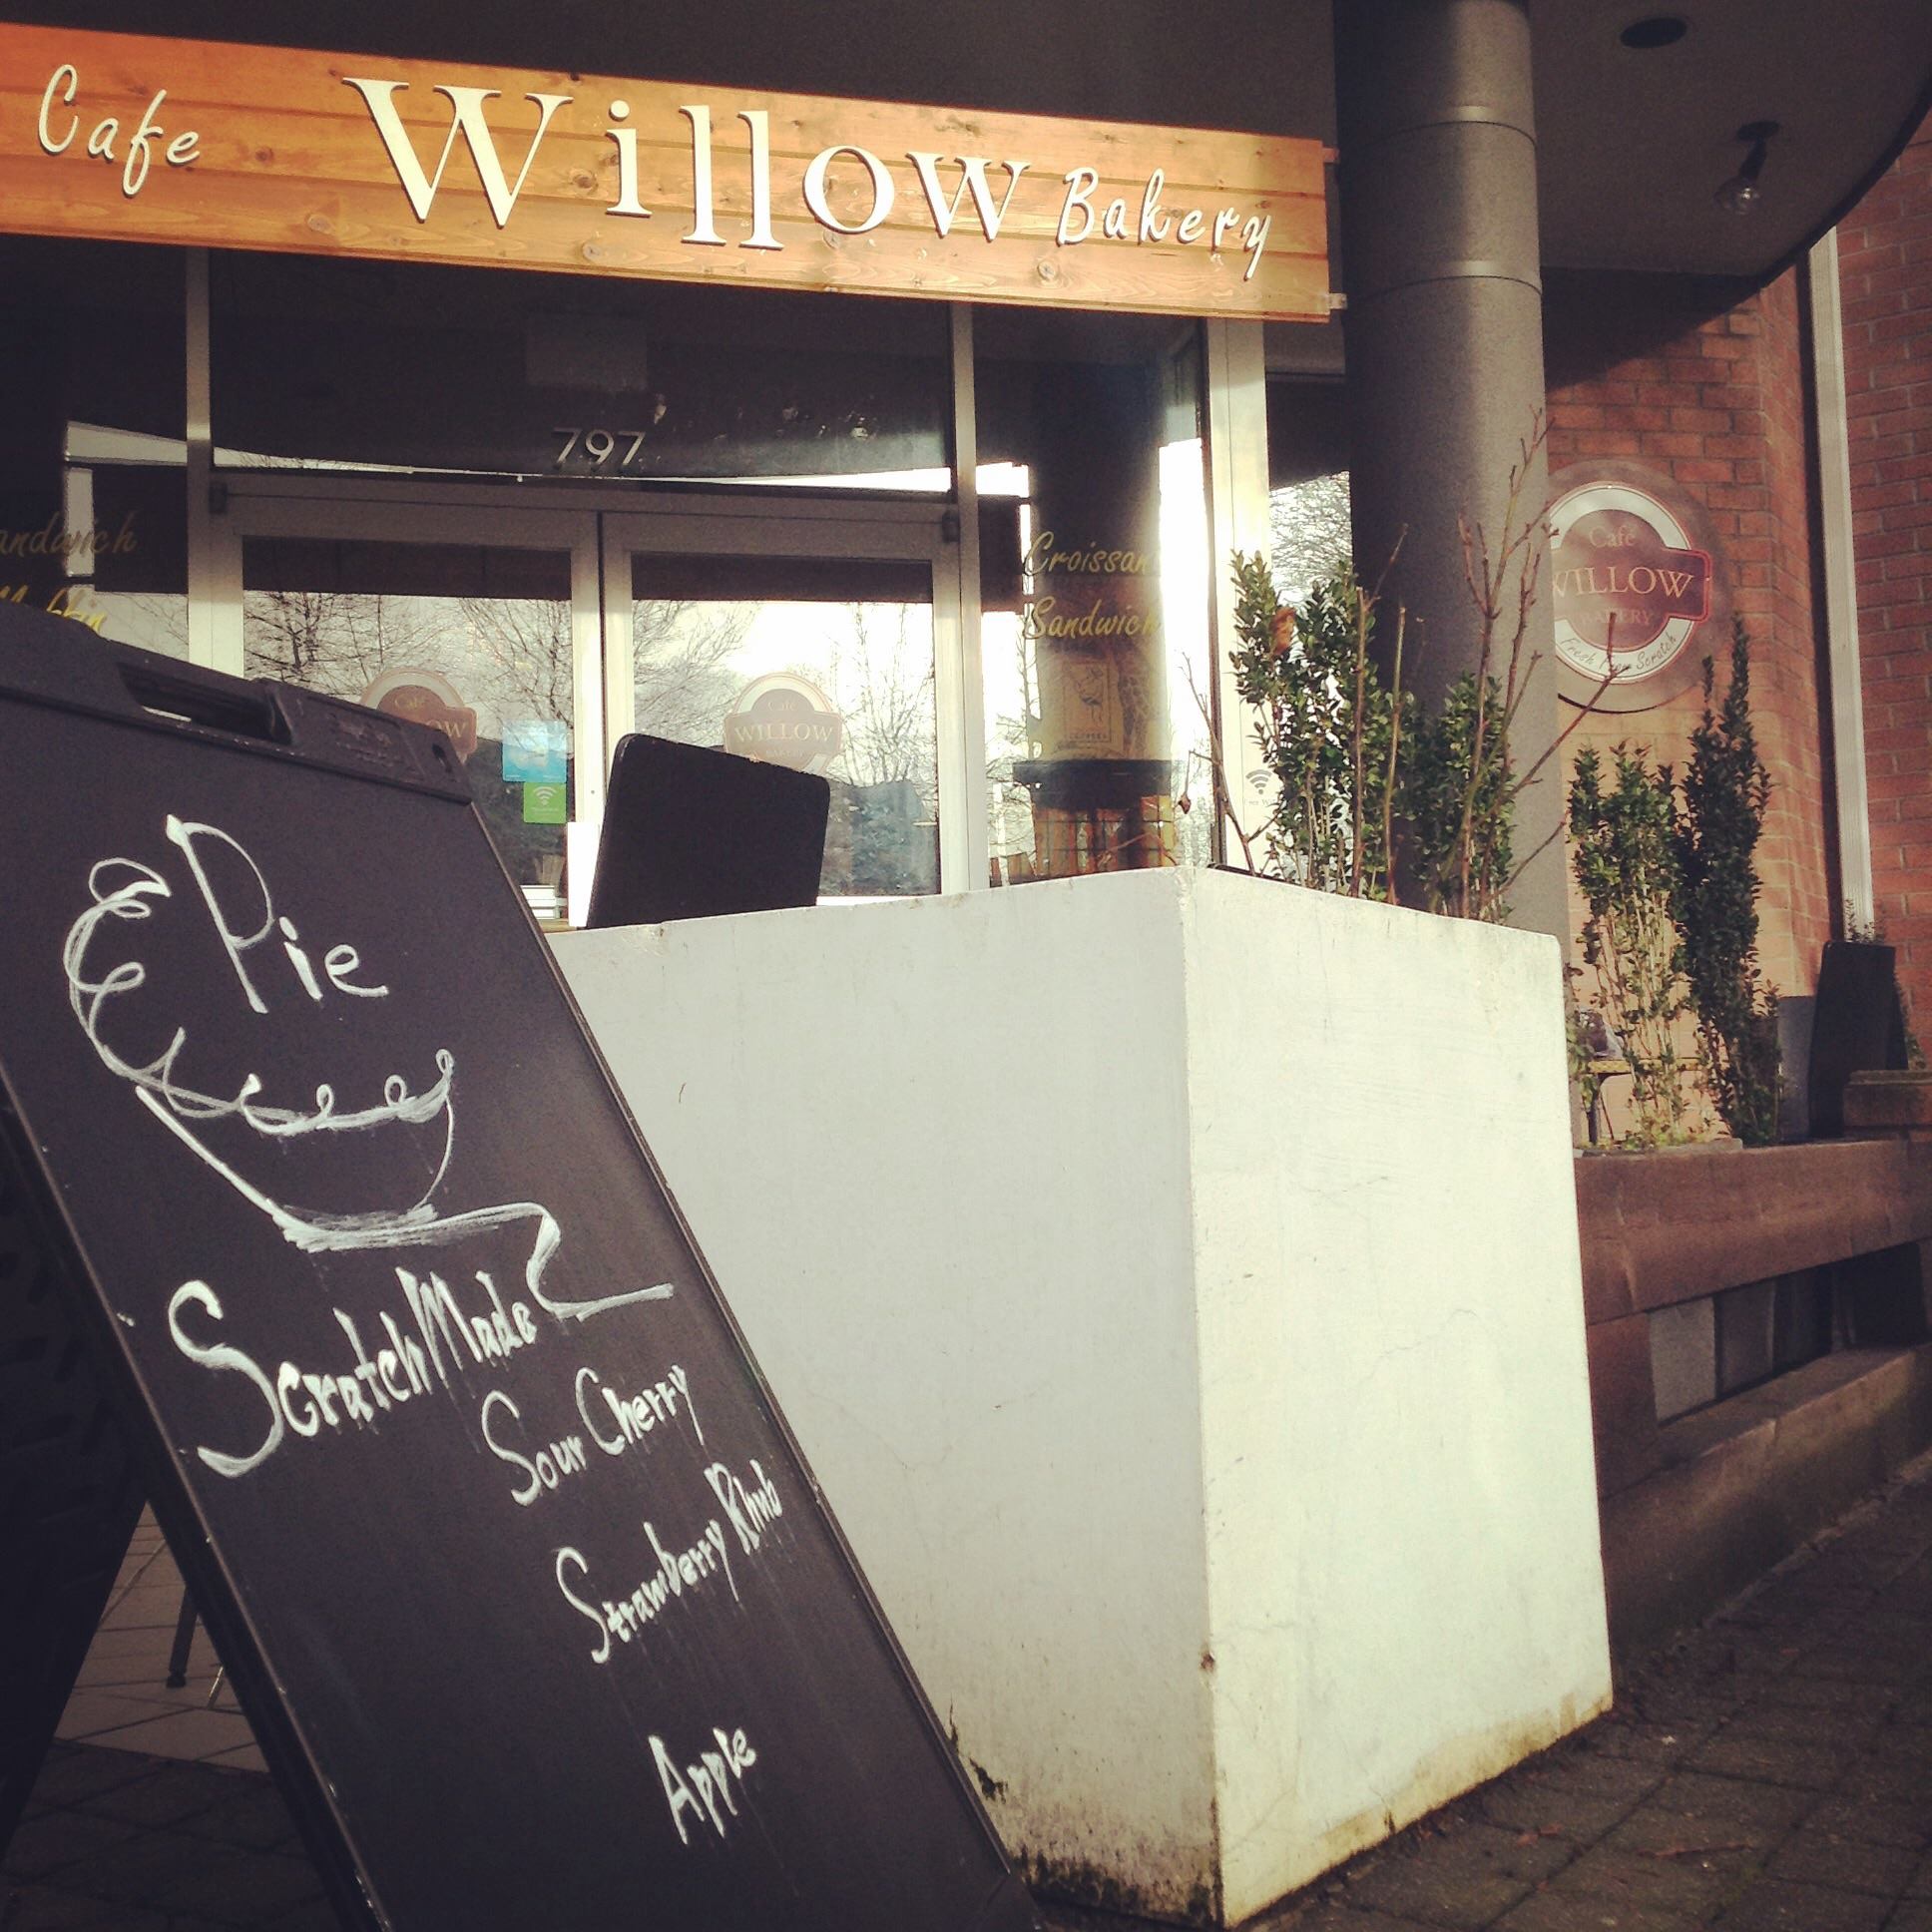 Cafe Willow Bakery
797
Sandwich
Croissant
Sandwich
Café
WILLOW
BAKERY
Fresh From Scratch
Café
WILLOW
Pie
Scratch Made
Sour Cherry
Strawberry Rhub
Apple